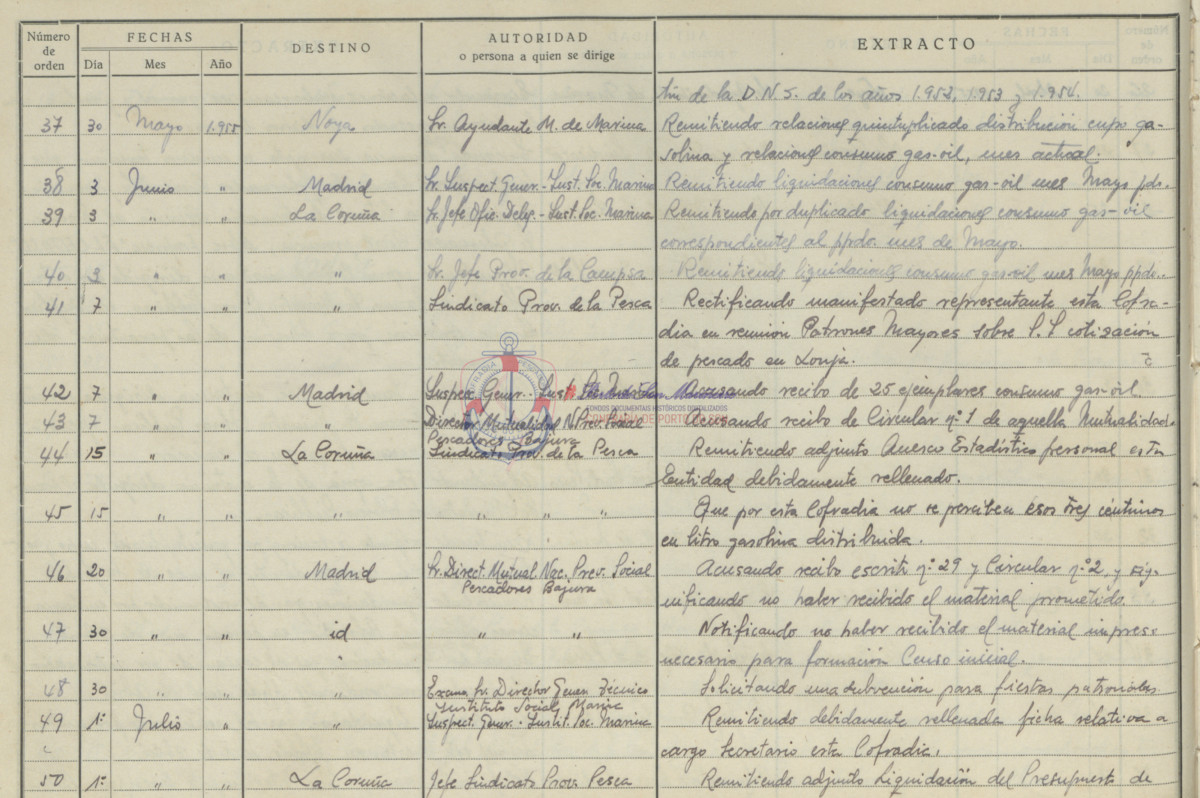 Número de orden
FECHAS
Dia Mes Año
DESTINO
AUTORIDAD
o persona a quien se dirige
EXTRACTO
de la D.N.S. de los años 1.952, 1.953 y 1.954.
37 30 Mayo 1.955 Noya Sr. Ayudante M. de Marina Remitiendo relaciones quintuplicado distribución cupo ga-
solina y relaciones consumo gas-oil, mes actual.
38 3 Junio " Madrid Sr. Inspect. Gener.-Inst. Soc. Marina Remitiendo liquidaciones consumo gas-oil mes Mayo pdo.
39 3 " " La Coruña Sr. Jefe Ofic. Deleg.-Inst. Soc. Marina Remitiendo por duplicado liquidaciones consumo gas-oil
correspondientes al ppdo. mes de Mayo.
40 3 " " " Sr. Jefe Prov. de la Campsa Remitiendo liquidaciones consumo gas-oil mes Mayo ppdo.
41 7 " " " Sindicato Prov. de la Pesca Rectificando manifestado representante esta Cofra-
dia en reunión Patrones Mayores sobre cotización
de pescado en Lonja.
42 7 " " Madrid Inspec. Gener. Inst. Acusando recibo de 25 ejemplares consumo gas-oil.
43 7 " " " Director Mutualidad N. Prev. Social Acusando recibo de Circular nº 1 de aquella Mutualidad.
Pescadores Bajura
44 15 " " La Coruña Sindicato Prov. de la Pesca Remitiendo adjunto Anexo Estadístico personal esta
Entidad debidamente rellenado.
45 15 " " " " " " Que por esta Cofradia no se perciben esos tres céntimos
en litro gasolina distribuida.
46 20 " " Madrid Sr. Direct. Mutual. Nac. Prev. Social Acusando recibo escrito nº 29 y Circular nº 2, y sig-
Pescadores Bajura
nificando no haber recibido el material prometido.
47 30 " " id " " Notificando no haber recibido el material impreso
necesario para formación Censo inicial.
48 30 " " " Excmo Sr. Director Gener. Técnico Solicitando una subvención para fiestas patronales
Instituto Social Marina
49 1º Julio " " Inspect. Gener. Instit. Soc. Marina Remitiendo debidamente rellenada ficha relativa a
cargo Secretario esta Cofradia.
50 1º " " La Coruña Jefe Sindicato Prov. Pesca Remitiendo adjunto Liquidación del Presupuesto de